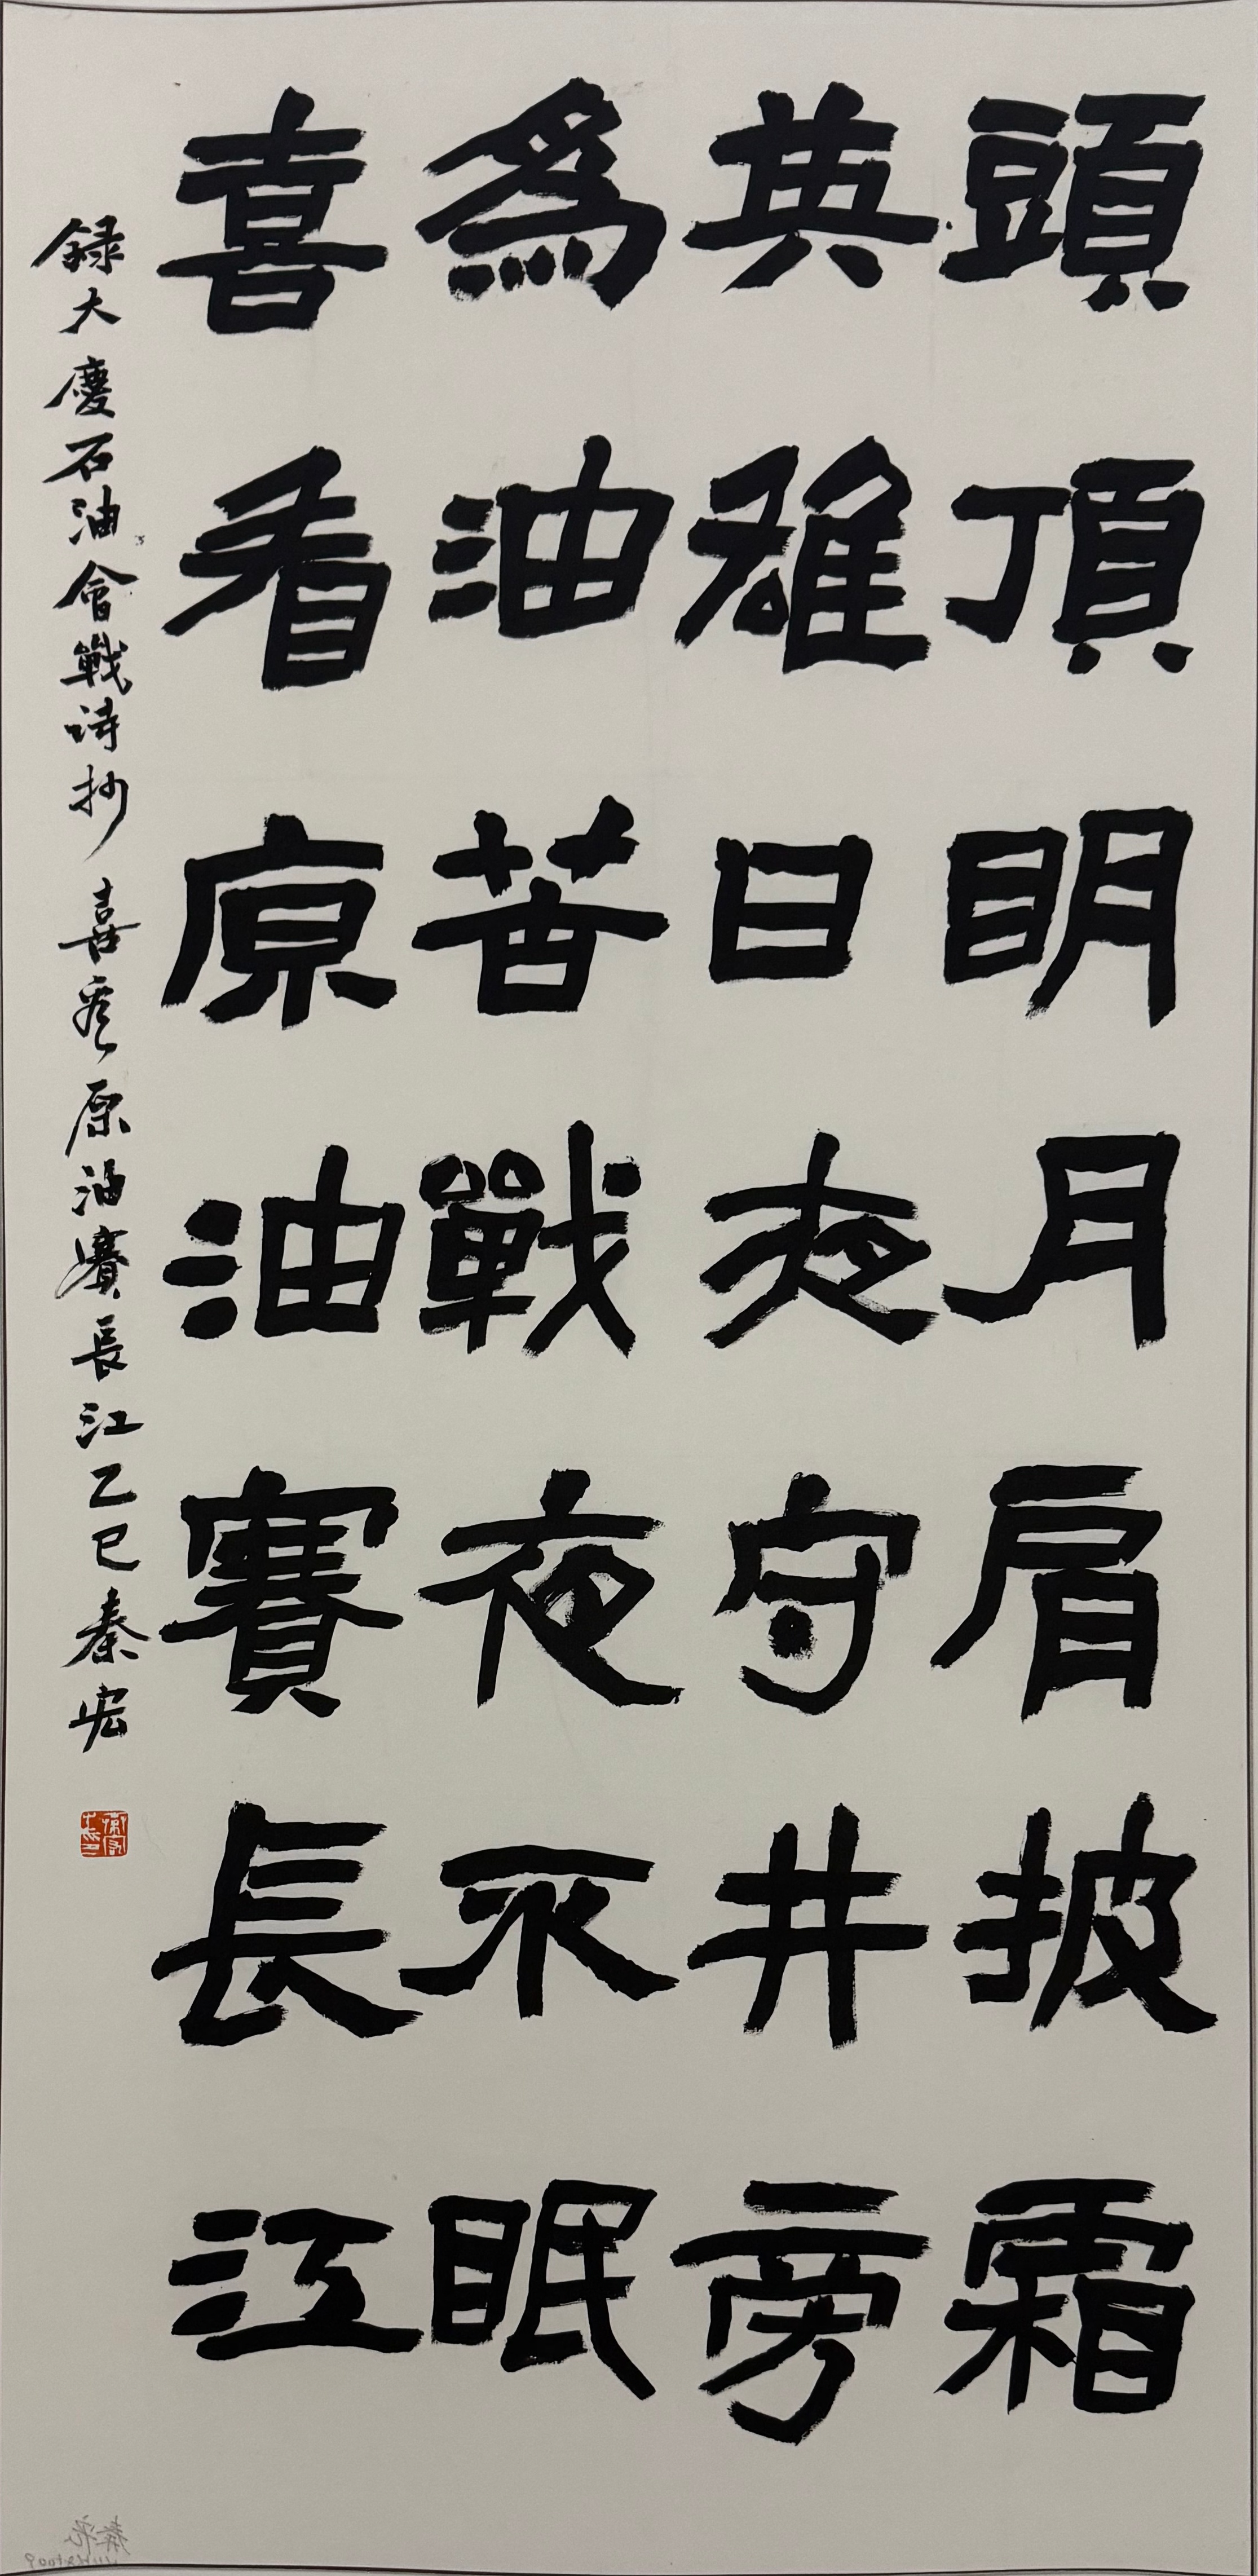 頭頂明月肩披霜
英雄日夜守井旁
為油苦戰夜不眠
喜看原油賽長江
録大慶石油會戰詩抄 喜看原油賽長江乙巳秦宏